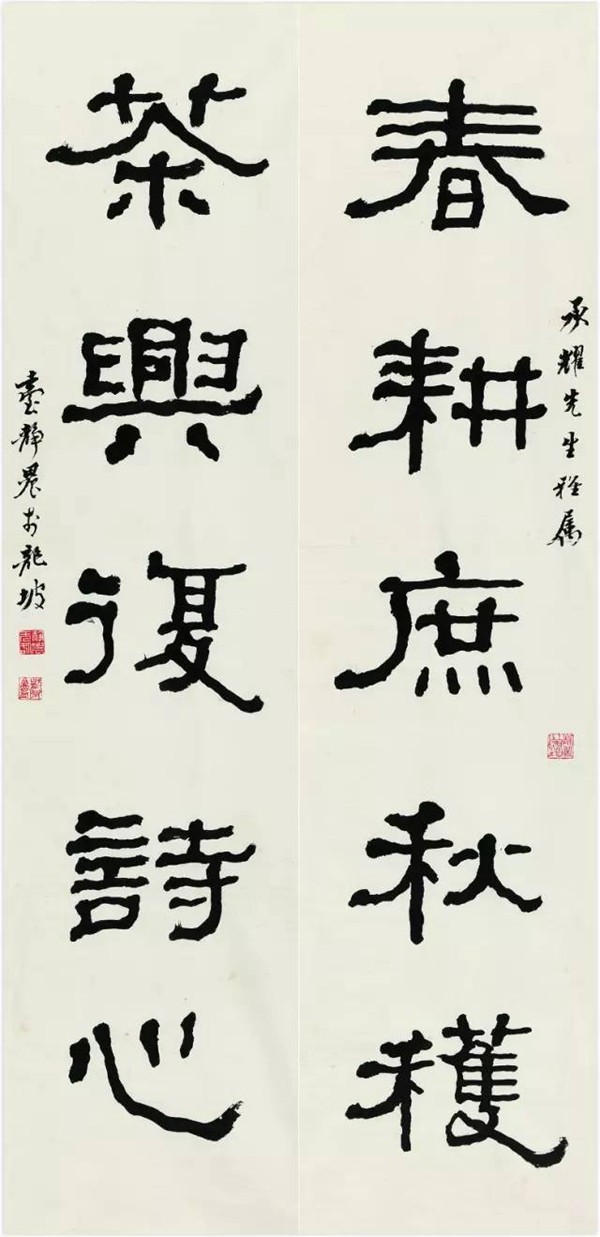 承耀先生雅属
春耕庶秋穫
茶興復詩心
臺靜農於龍坡